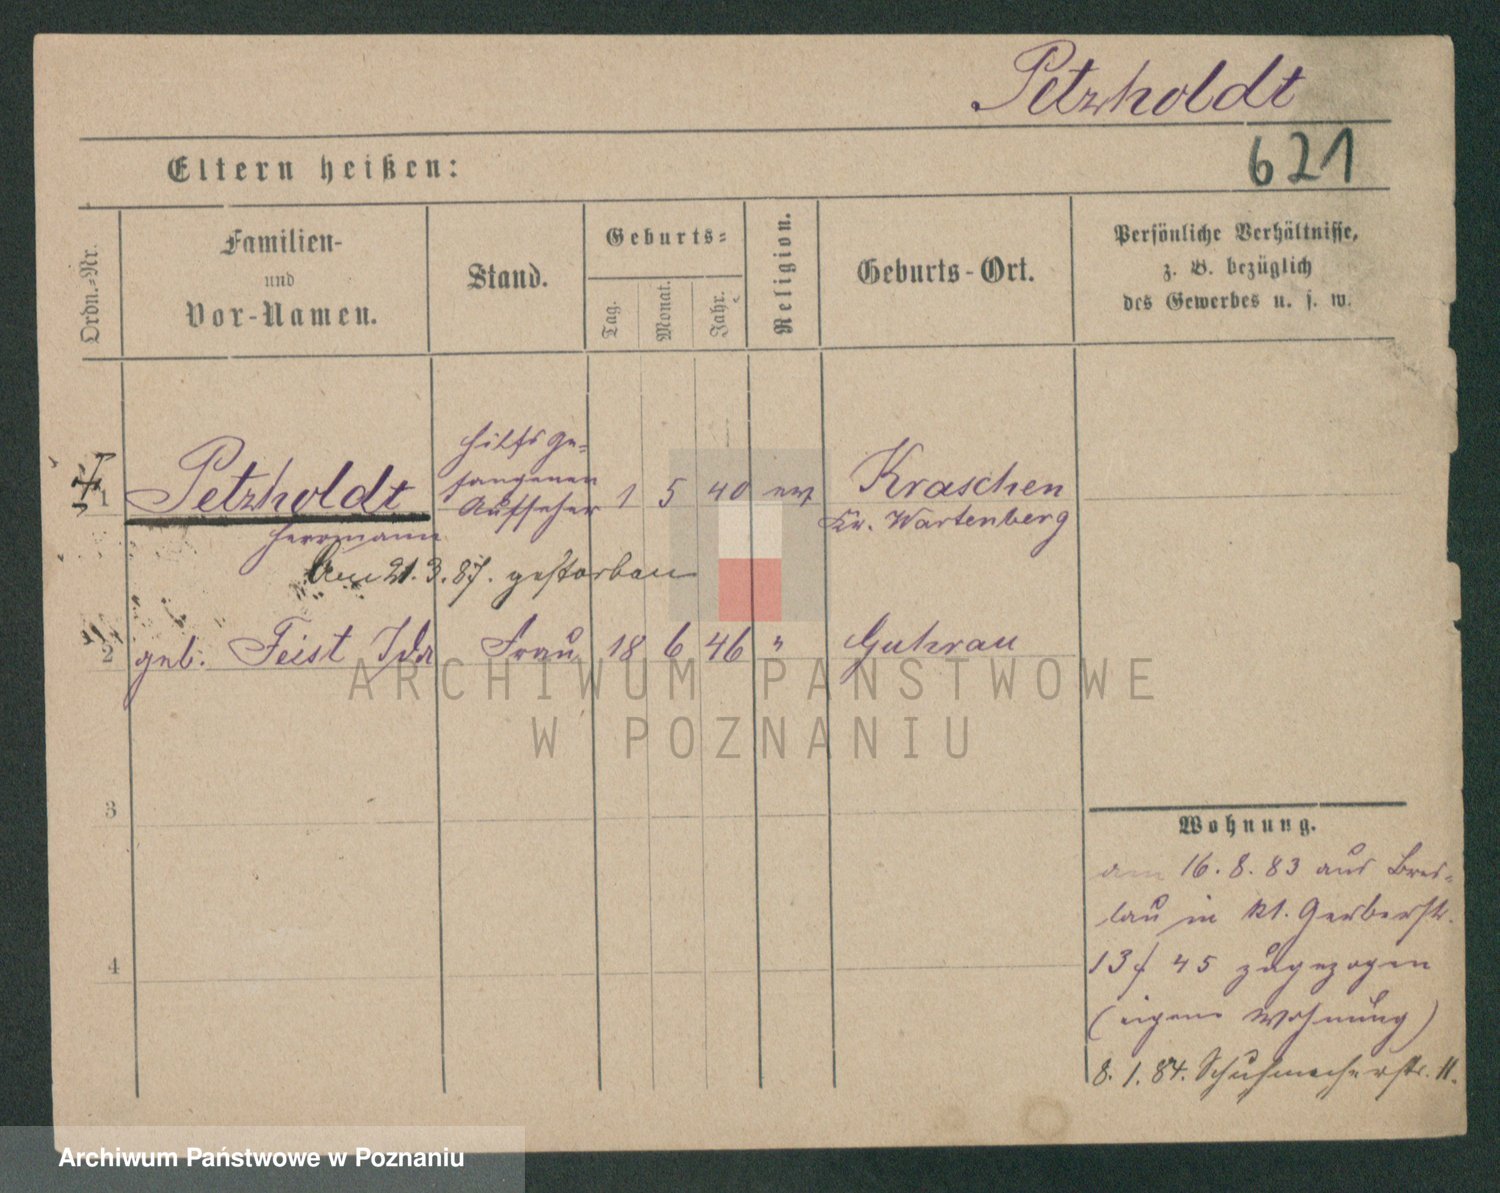 Petzholdt
Eltern heißen:
621
Ordn.-Nr.
Familien-
und
Vor-Namen.
Stand.
Geburts-
Tag.
Monat.
Jahr.
Religion.
Geburts-Ort.
Persönliche Verhältnisse,
z. B. bezüglich
des Gewerbes u. s. w.
1
Petzholdt
Herrmann
Hilfsge-
fangenen
Aufseher
1 5 40 ev
Kraschen
Kr. Wartenberg
Am 21.3.87. gestorben
2
geb. Feist Ida
Frau
18 6 46 "
Guhrau
ARCHIWUM PAŃSTWOWE
W POZNANIU
3
4
Wohnung.
am 16.8.83 aus Bres-
lau in Kl. Gerberstr.
13/45 zugezogen
(eigene Wohnung)
8.1.84. Schuhmacherstr. 11.
Archiwum Państwowe w Poznaniu